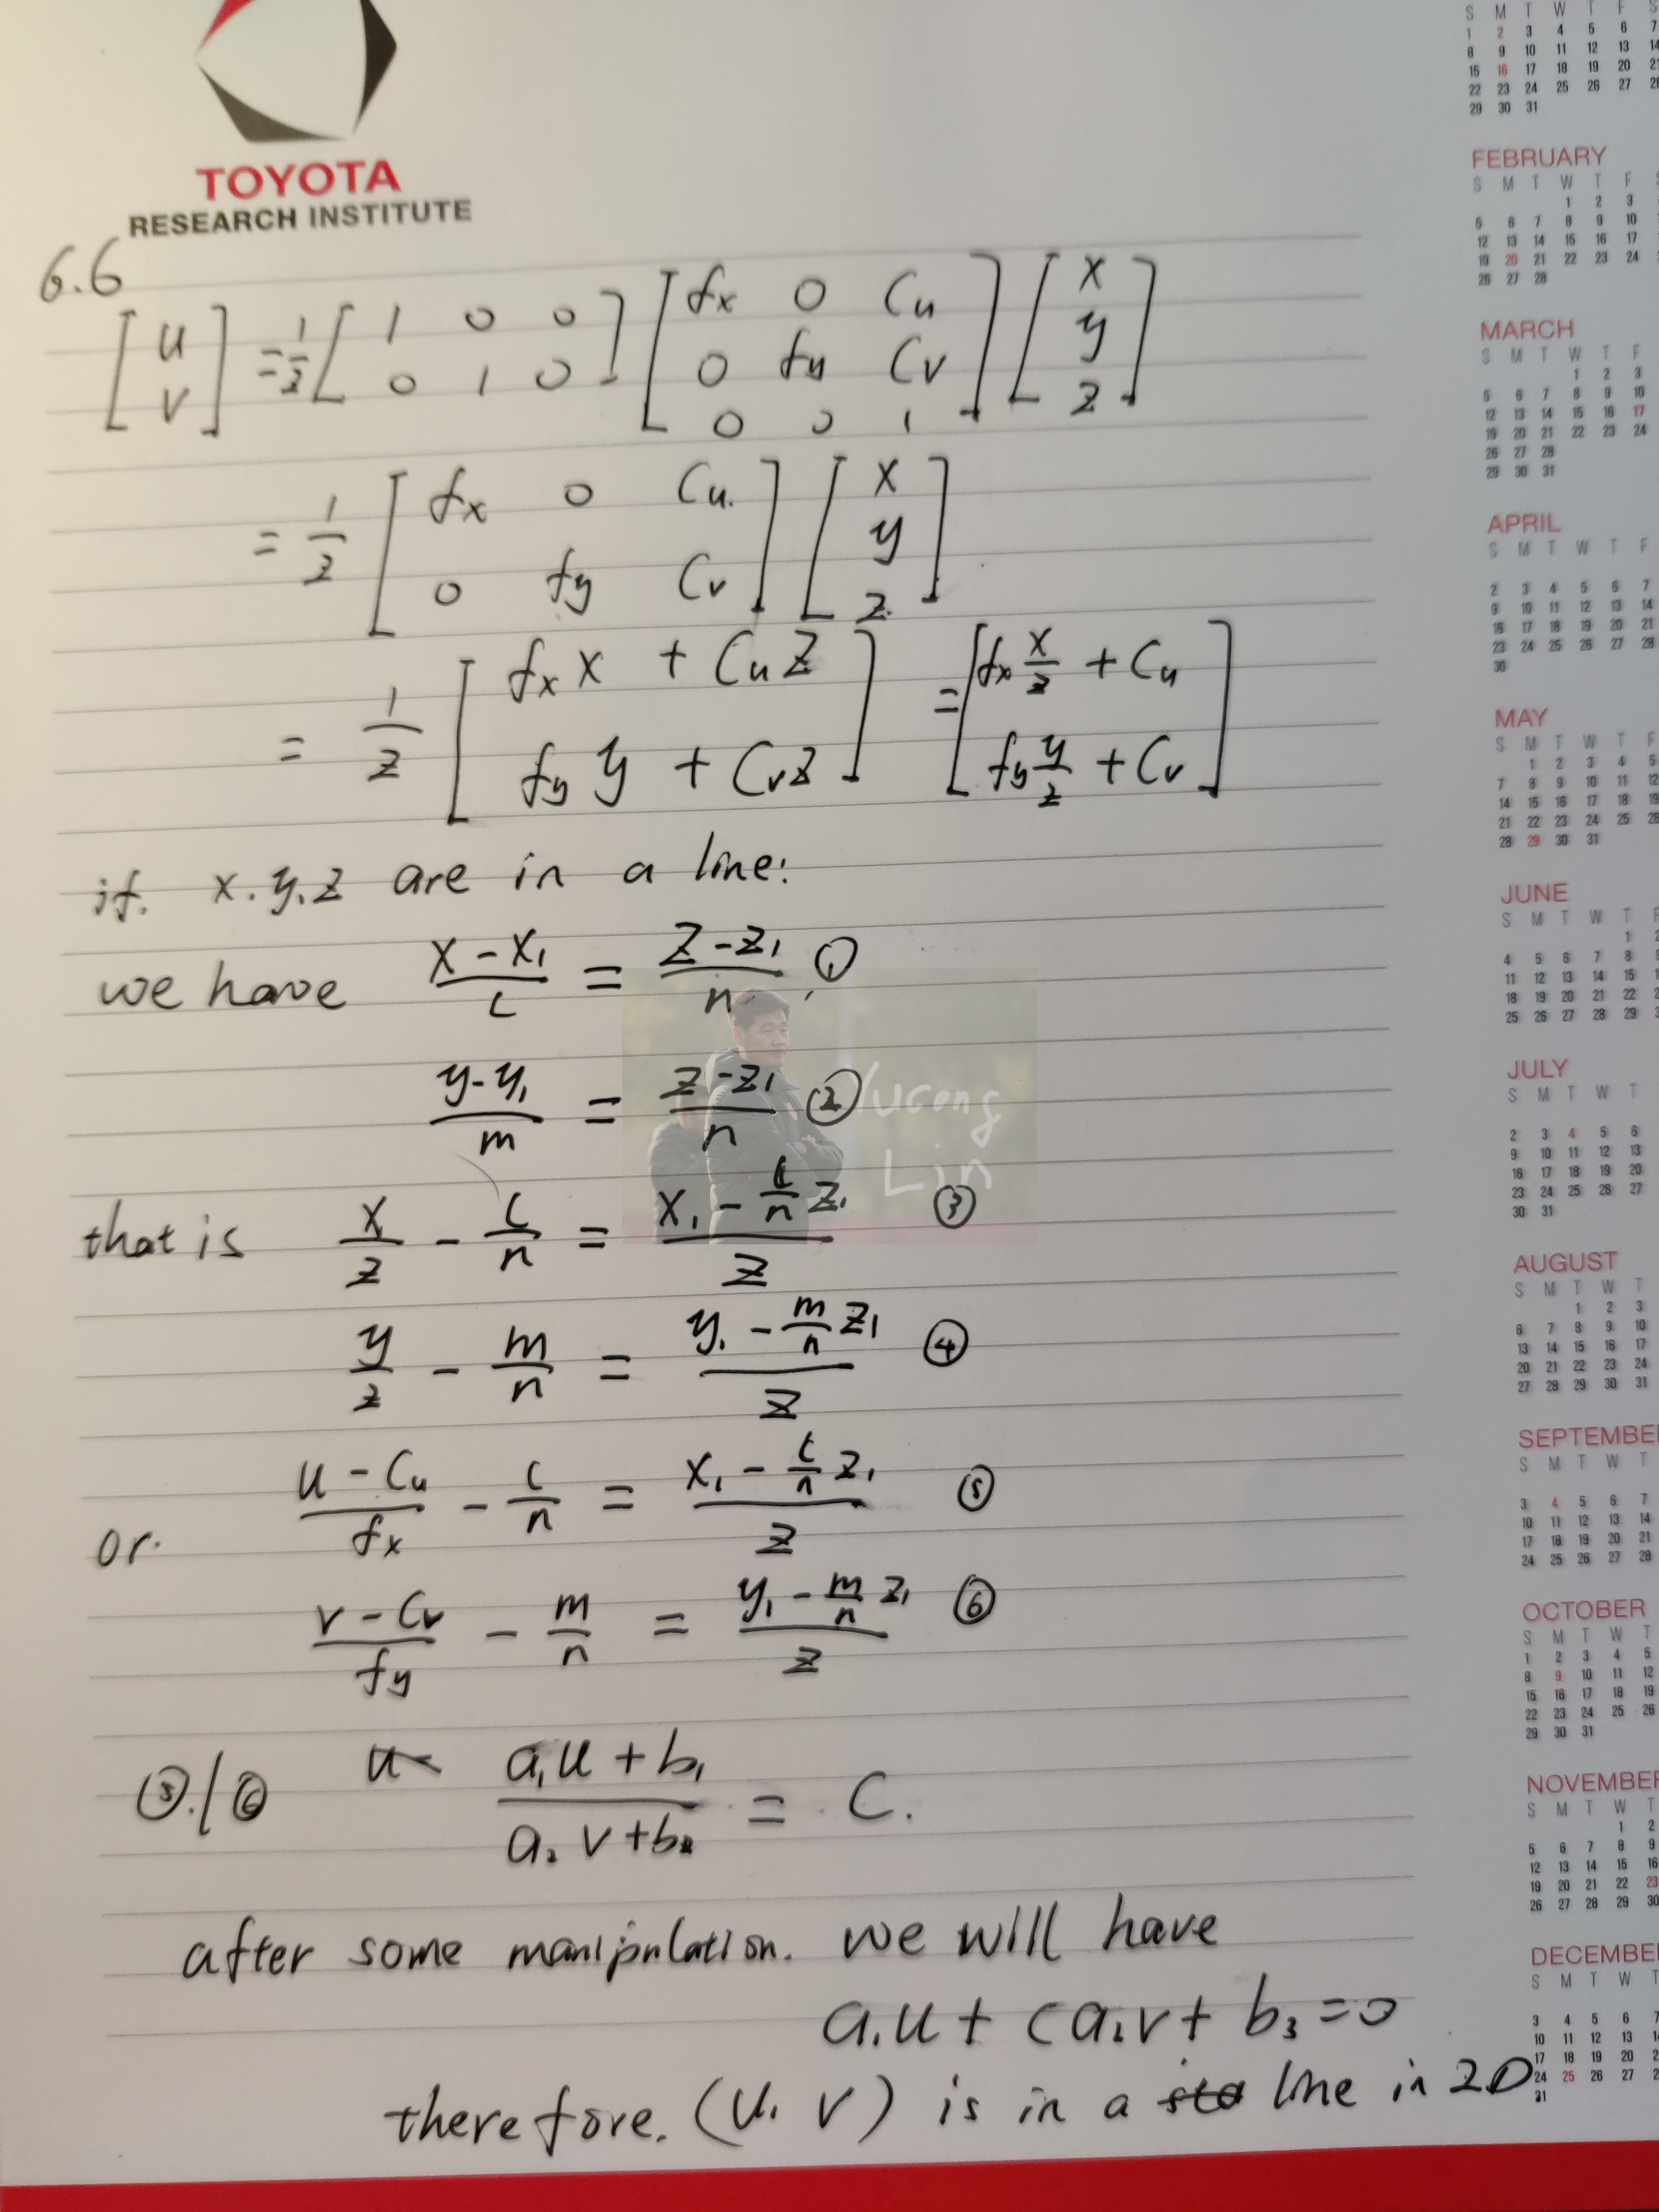 TOYOTA
RESEARCH INSTITUTE
6.6
[u; v] = 1/z [1 0 0; 0 1 0] [fx 0 Cu; 0 fy Cv; 0 0 1] [x; y; z]
= 1/z [fx 0 Cu; 0 fy Cv] [x; y; z]
= 1/z [fx x + Cu z; fy y + Cv z] = [fx x/z + Cu; fy y/z + Cv]
if. x.y.z are in a line:
we have (x - x₁)/l = (z - z₁)/n ①
(y - y₁)/m = (z - z₁)/n ②
Yucong
Lin
that is x/z - l/n = (x₁ - l/n z₁)/z ③
y/z - m/n = (y₁ - m/n z₁)/z ④
or. (u - Cu)/fx - l/n = (x₁ - l/n z₁)/z ⑤
(v - Cv)/fy - m/n = (y₁ - m/n z₁)/z ⑥
⑤/⑥ (a₁u + b₁)/(a₂v + b₂) = C.
after some manipulation. we will have
a₁u + ca₂v + b₃ = 0
therefore. (u. v) is in a line in 2D
S M T W T F S
1 2 3 4 5 6 7
8 9 10 11 12 13 14
15 16 17 18 19 20 21
22 23 24 25 26 27 28
29 30 31
FEBRUARY
S M T W T F
1 2 3
5 6 7 8 9 10
12 13 14 15 16 17
19 20 21 22 23 24
26 27 28
MARCH
S M T W T F
1 2 3
5 6 7 8 9 10
12 13 14 15 16 17
19 20 21 22 23 24
26 27 28
29 30 31
APRIL
S M T W T F
2 3 4 5 6 7
9 10 11 12 13 14
16 17 18 19 20 21
23 24 25 26 27 28
30
MAY
S M T W T F
1 2 3 4 5
7 8 9 10 11 12
14 15 16 17 18 19
21 22 23 24 25 26
28 29 30 31
JUNE
S M T W T
1
4 5 6 7 8
11 12 13 14 15
18 19 20 21 22
25 26 27 28 29
JULY
S M T W T
2 3 4 5 6
9 10 11 12 13
16 17 18 19 20
23 24 25 26 27
30 31
AUGUST
S M T W T
1 2 3
6 7 8 9 10
13 14 15 16 17
20 21 22 23 24
27 28 29 30 31
SEPTEMBE
S M T W T
3 4 5 6 7
10 11 12 13 14
17 18 19 20 21
24 25 26 27 28
OCTOBER
S M T W T
1 2 3 4 5
8 9 10 11 12
15 16 17 18 19
22 23 24 25 26
29 30 31
NOVEMBE
S M T W T
1 2
5 6 7 8 9
12 13 14 15 16
19 20 21 22 23
26 27 28 29 30
DECEMBE
S M T W T
3 4 5 6 7
10 11 12 13
17 18 19 20
24 25 26 27
31